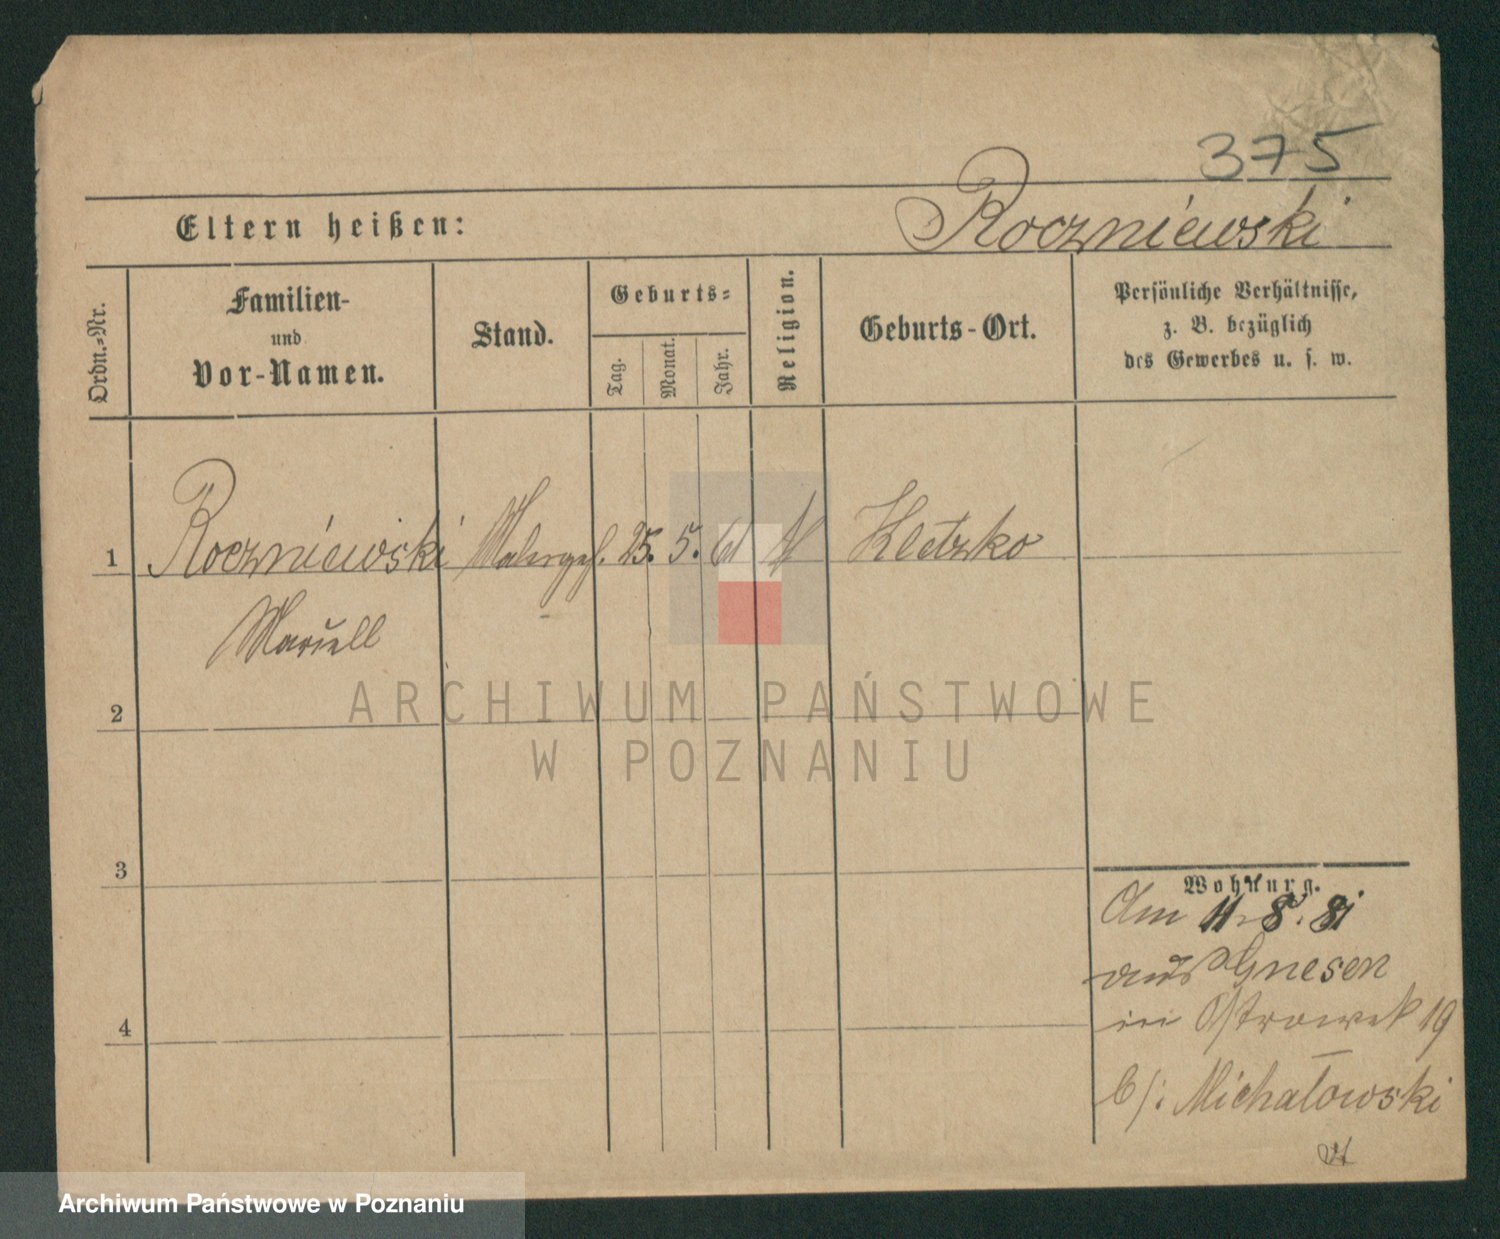 375
Eltern heißen: Roczniewski
Ordn.-Nr.
Familien-
und
Vor-Namen.
Stand.
Geburts-
Tag.
Monat.
Jahr.
Religion.
Geburts-Ort.
Persönliche Verhältnisse,
z. B. bezüglich
des Gewerbes u. s. w.
1 Roczniewski Malergeh. 25. 5. 61 Kletzko
2
3
4
Wohnung.
Am 11. 8. 81
aus Gnesen
in Ostrowek 19
b/: Michałowski
ARCHIWUM PAŃSTWOWE
W POZNANIU
Archiwum Państwowe w Poznaniu